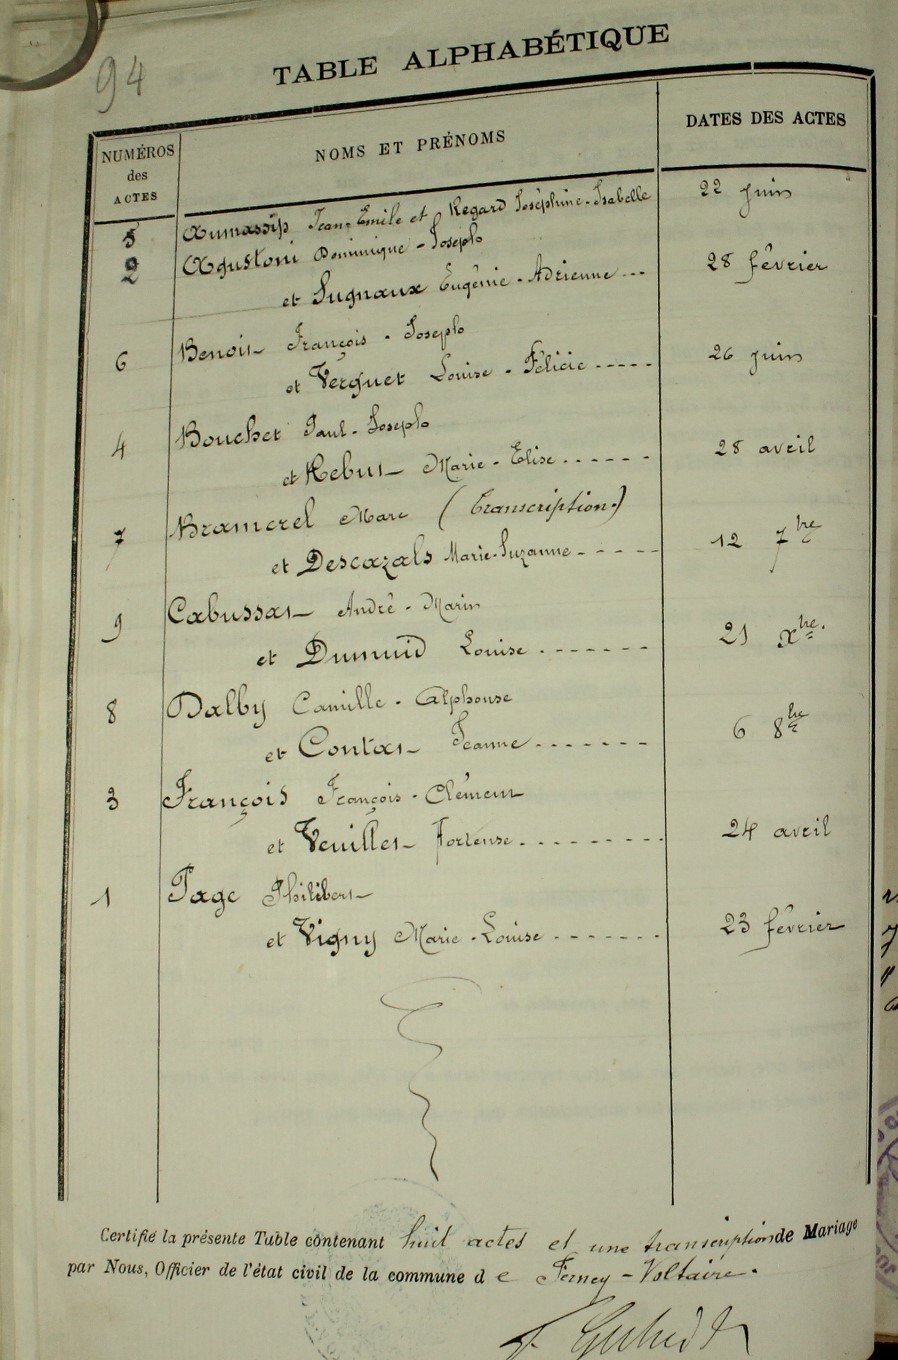 94
TABLE ALPHABÉTIQUE
NUMÉROS des ACTES
NOMS ET PRÉNOMS
DATES DES ACTES
5 Aumassip Jean-Emile et Regard Joséphine-Isabelle 22 juin
2 Agustoni Dominique-Joseph
et Sugnaux Eugénie-Adrienne 28 février
6 Benoit François-Joseph
et Verguet Louise-Félicie 26 juin
4 Bouchet Paul-Joseph
et Rebut Marie-Elise 28 avril
7 Bramerel Marc (Transcription)
et Descazals Marie-Suzanne 12 7bre
9 Cabussat André-Marin
et Dumuid Louise 21 Xbre.
8 Dalby Camille-Alphonse
et Contat Jeanne 6 8bre
3 François François-Clément
et Veuillet Hortense 24 avril
1 Page Philibert
et Vigny Marie-Louise 23 février
Certifié la présente Table contenant huit actes et une transcription de Mariage
par Nous, Officier de l'état civil de la commune de Ferney-Voltaire.